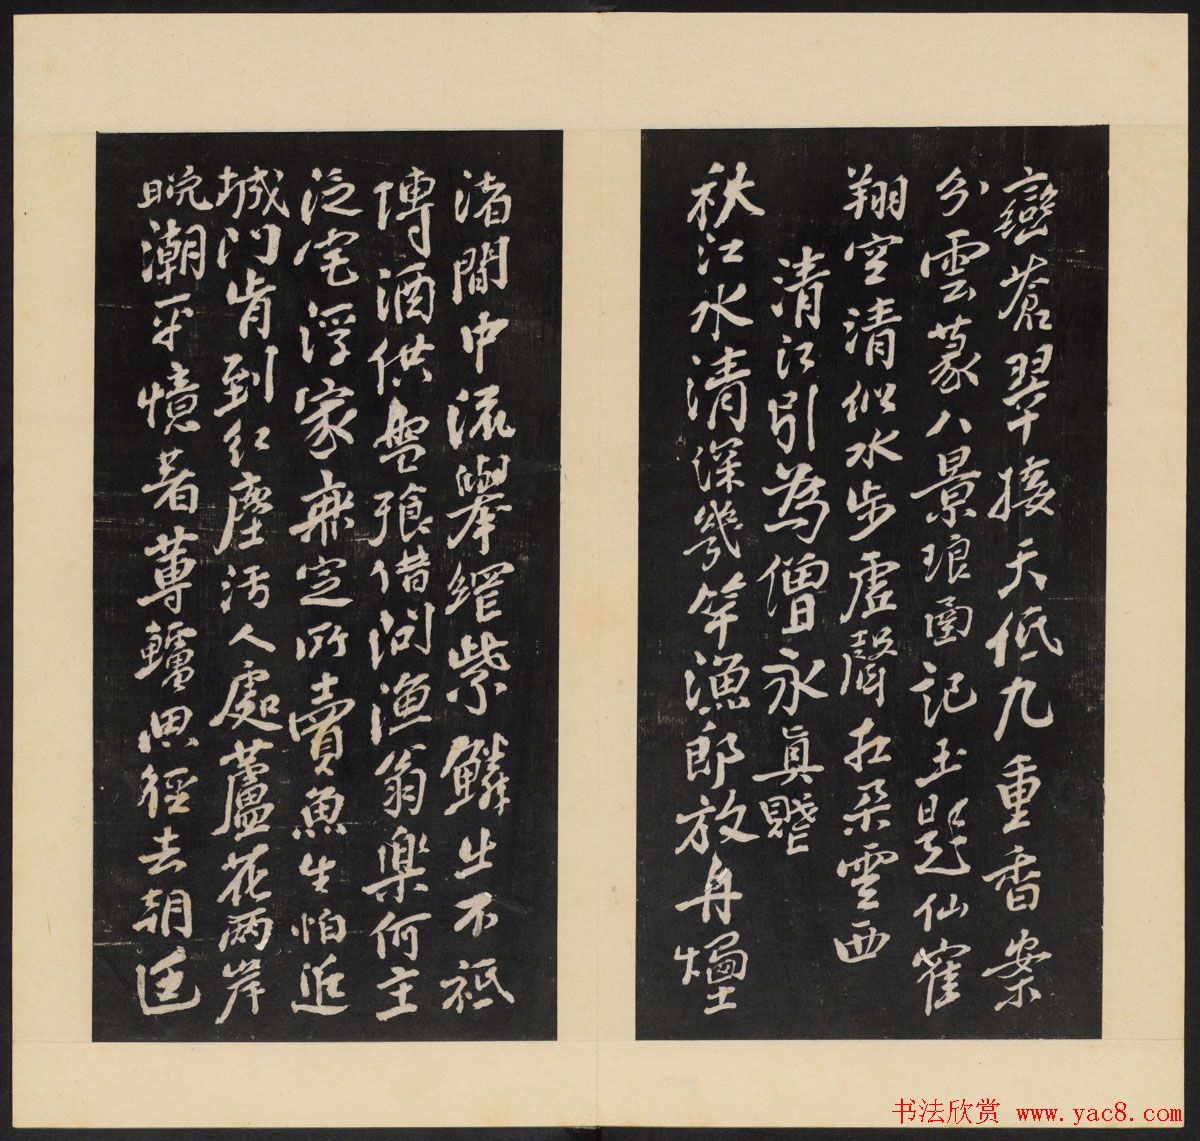 巒蒼翠接天低九重香案
分雲篆八景琅函記玉題仙寉
翔空清似水步虛聲在朵雲西
清江引為僧永真賦
秋江水清深幾竿漁郎放舟煙
渚間中流舉網紫鱗出不祗
博酒供盤飱借問漁翁樂何主
泛宅浮家無定所賣魚生怕近
城門肯到紅塵污人處蘆花兩岸
晚潮平憶著蓴鱸興徑去朝廷
书法欣赏 www.yac8.com